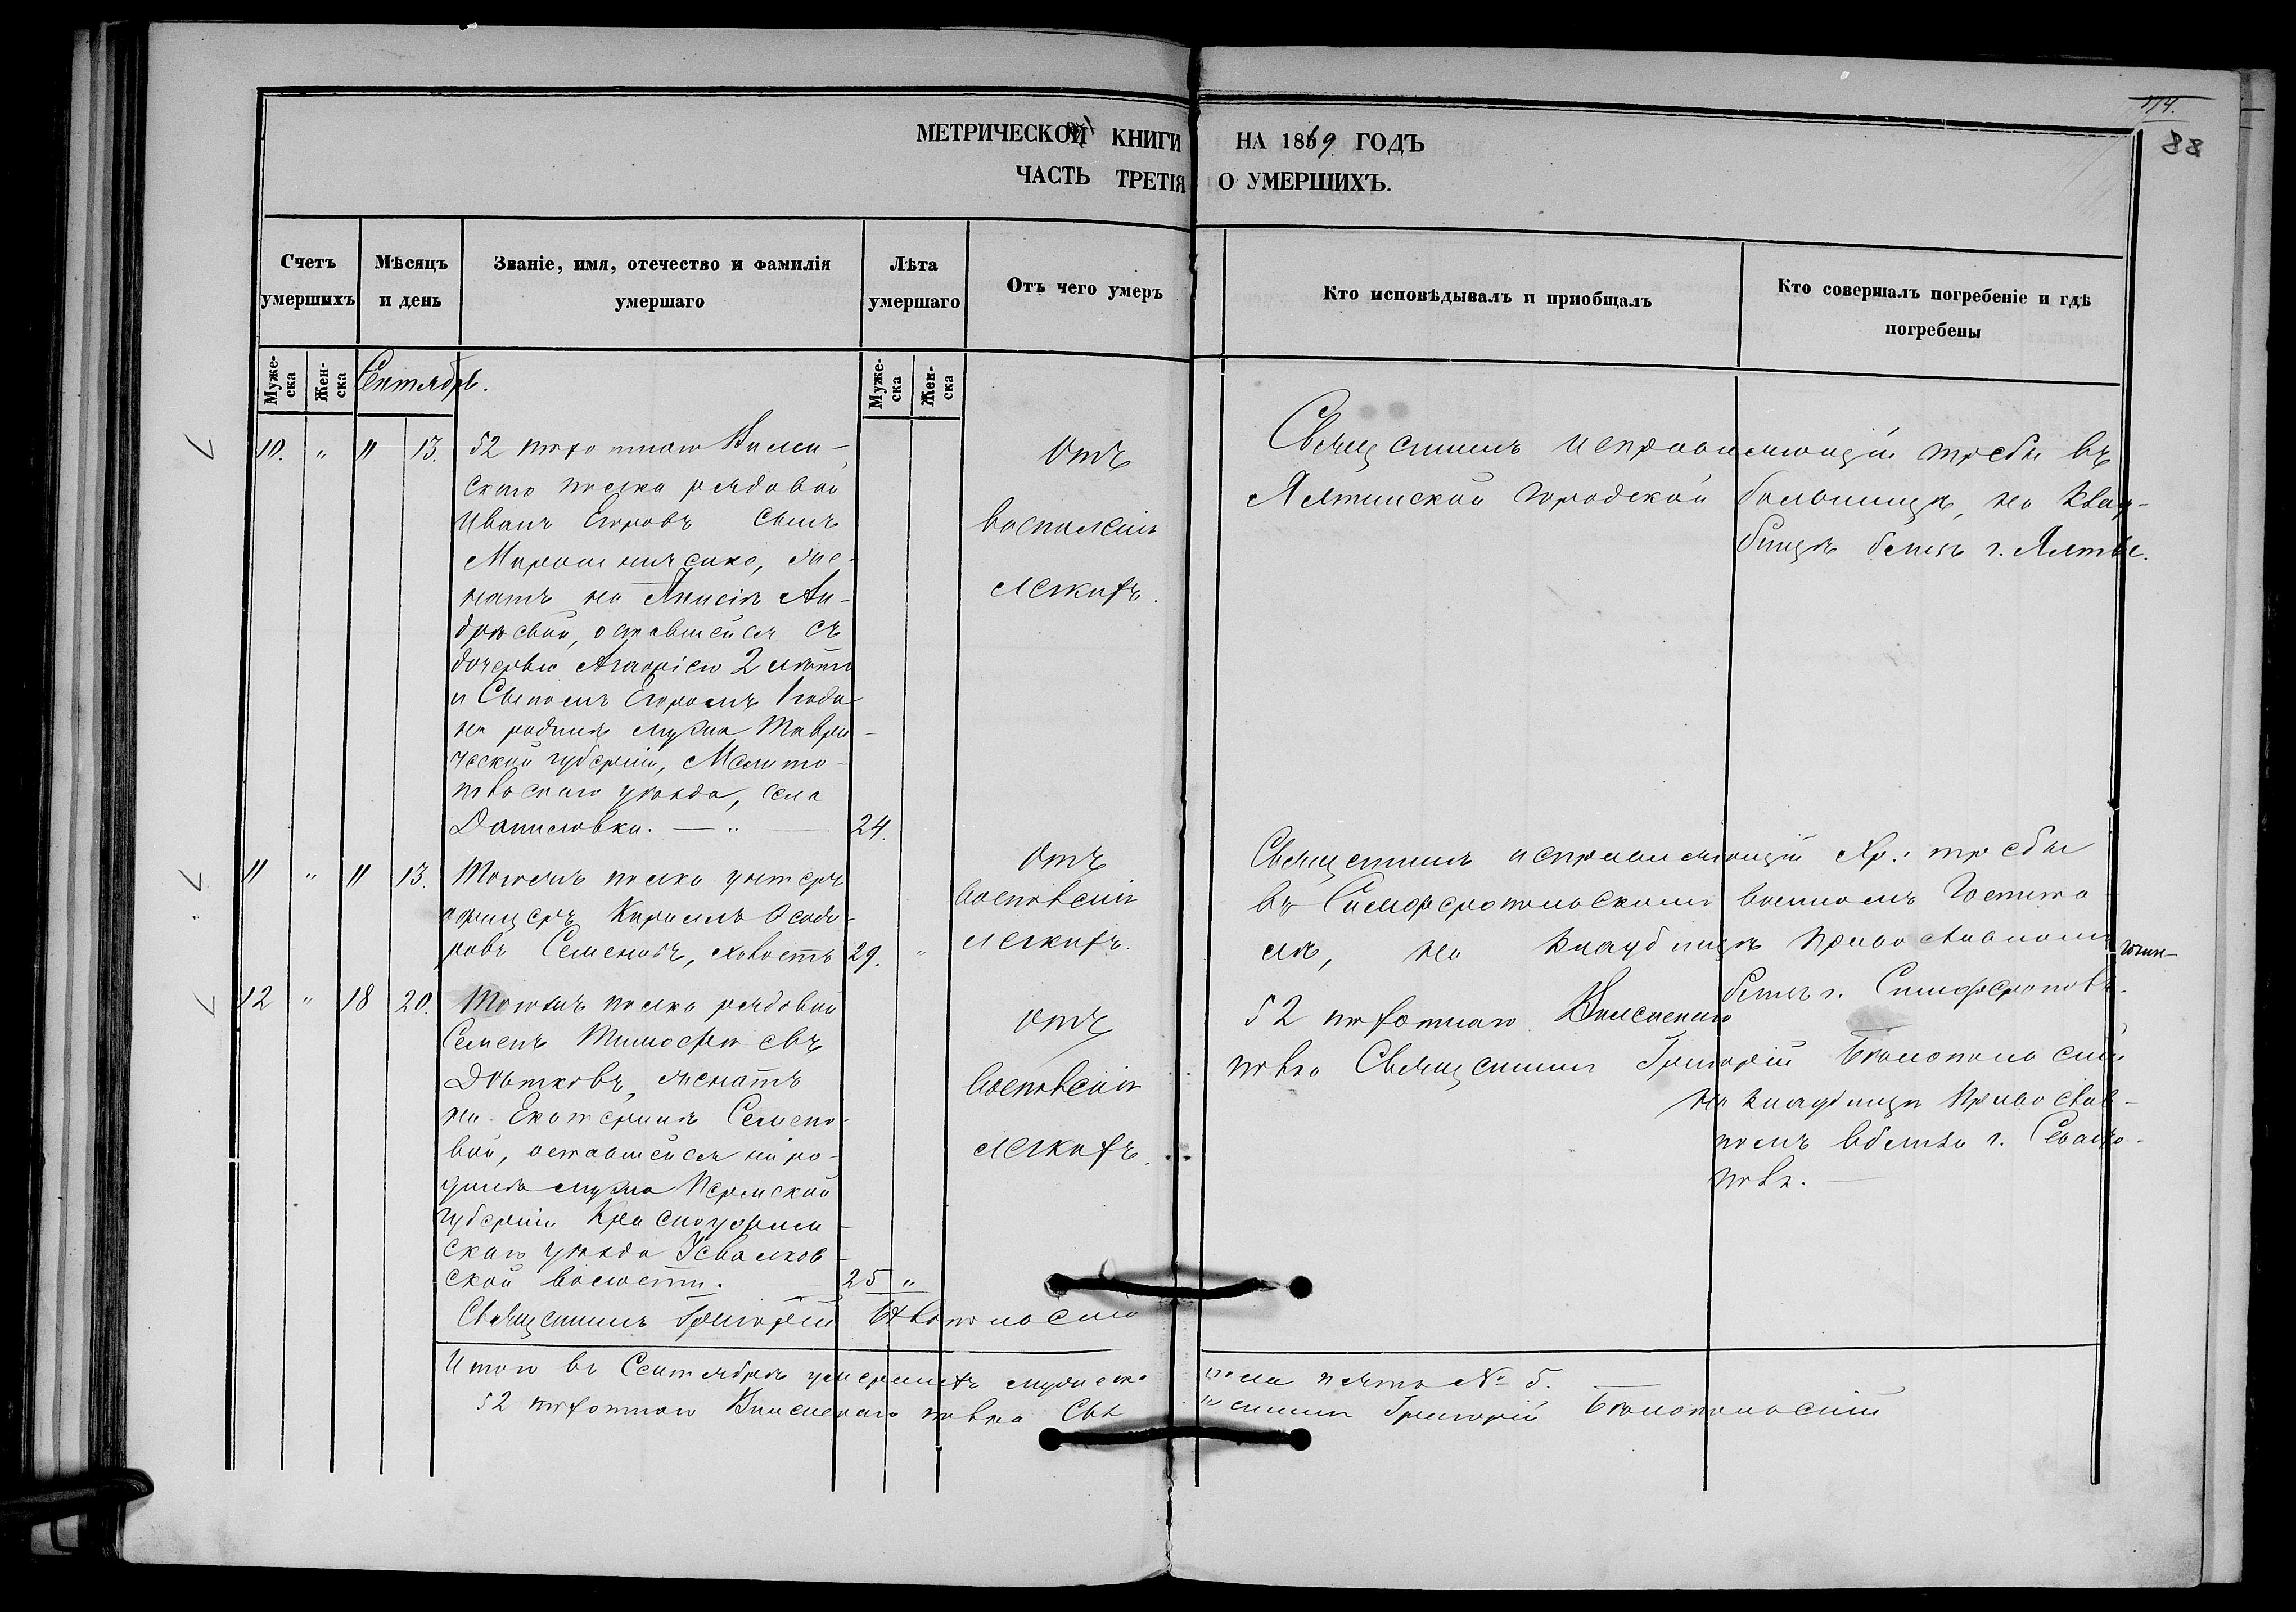 114.
88
МЕТРИЧЕСКОЙ КНИГИ НА 1869 ГОДЪ
ЧАСТЬ ТРЕТІЯ О УМЕРШИХЪ.
Счетъ умершихъ
Мѣсяцъ и день
Званіе, имя, отечество и фамилія умершаго
Лѣта умершаго
Отъ чего умеръ
Кто исповѣдывалъ и пріобщалъ
Кто совершалъ погребеніе и гдѣ погребены
Муже-ска
Жен-ска
Сентябрь.
Муже-ска
Жен-ска
10. " 11 13. 52 пѣхотнаго Вилен-
скаго полка рядовой
Иванъ Егоровъ сынъ
Мирошниченко, же-
натъ на Анисіи Ан-
дреевой, оставшейся съ
дочерью 2 лѣтъ
и Сыномъ Егоромъ 1 года
на родинѣ мужа Таври-
ческой губерніи, Мелито-
польскаго уѣзда, села
Даниловки. — " — 24.
Отъ
воспаленія
легкихъ.
Священникъ исправляющій требы въ
Ялтинской городской больницѣ, на клад-
бищѣ близь г. Ялты.
11 " 11 13. Тогожъ полка унтеръ
офицеръ Кирилъ
ровъ Семеновъ, холостъ 29. "
Отъ
воспаленія
легкихъ.
Священникъ исправляющій Хр: требы
въ Симферопольскомъ военномъ Госпита-
лѣ, на кладбищѣ Православномъ
близь г. Симферополь.
12 " 18 20. Тогожъ полка рядовой
Семенъ Тимофеевъ
Дѣтковъ, женатъ
на Екатеринѣ Семено-
вой, оставшейся на ро-
динѣ мужа Пермской
губерніи Красноуфим-
скаго уѣзда
ской волости. 25 "
Отъ
воспаленія
легкихъ.
52 пѣхотнаго Виленскаго
полка Священникъ Григорій Бѣлопольскій
на кладбищѣ Православ-
номъ вблизи г. Севасто-
поля.
Священникъ Григорій Бѣлопольскій
Итого въ Сентябрѣ умершихъ мужеска пола пять № 5.
52 пѣхотнаго Виленскаго полка Священникъ Григорій Бѣлопольскій